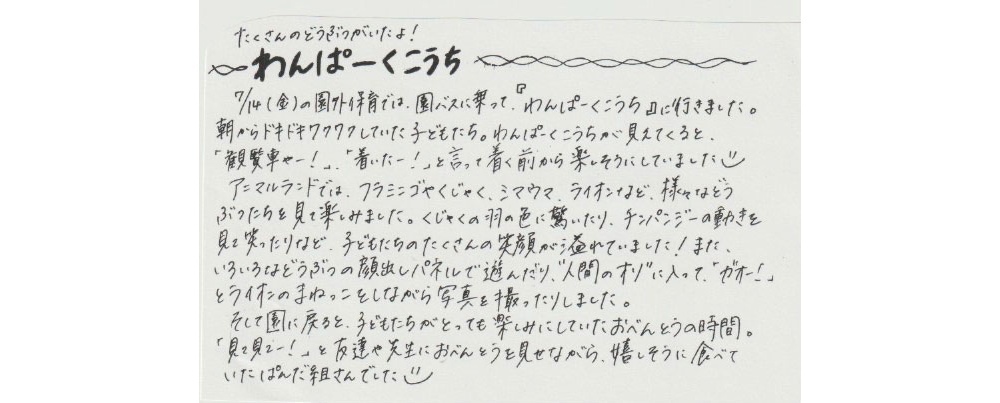 たくさんのどうぶつがいたよ!
わんぱーくこうち
7/14(金)の園外保育では、園バスに乗って、『わんぱーくこうち』に行きました。
朝からドキドキワクワクしていた子どもたち。わんぱーくこうちが見えてくると、
「観覧車やー!」、「着いたー!」と言って着く前から楽しそうにしていました
アニマルランドでは、フラミンゴやくじゃく、シマウマ、ライオンなど、様々などう
ぶつたちを見て楽しみました。くじゃくの羽の色に驚いたり、チンパンジーの動きを
見て笑ったりなど、子どもたちのたくさんの笑顔が溢れていました!また、
いろいろなどうぶつの顔出しパネルで遊んだり、"人間のオリ"に入って、「ガオー!」
とライオンのまねっこをしながら写真を撮ったりしました。
そして園に戻ると、子どもたちがとっても楽しみにしていたおべんとうの時間。
「見て見てー!」と友達や先生におべんとうを見せながら、嬉しそうに食べて
いたぱんだ組さんでした